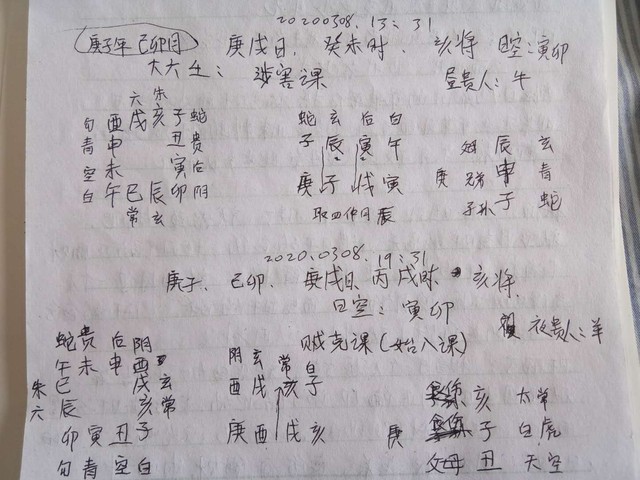 20200308.13:31
庚子年 己卯月 庚戌日、癸未时、亥将 日空:寅卯
大六壬: 涉害课 昼贵人:牛
六朱
勾酉戌亥子蛇 蛇玄后白
青申 丑贵 子辰寅午 辰玄
空未 寅后 庚 申青
白午巳辰卯阴 庚子戌寅 子孙子蛇
常玄 取四仲日辰
2020.0308.19:31
庚子、己卯、庚戌日、丙戌时 亥将
日空:寅卯
贼克课(始入课) 夜贵人:羊
蛇贵后阴 阴玄常白
午未申酉 酉戌亥子 亥太常
朱巳 戌玄
六辰 亥常 庚酉戌亥 庚 子白虎
卯寅丑子 父母丑天空
勾青空白